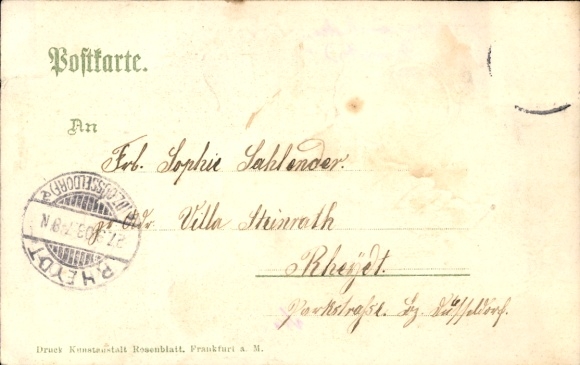 Postkarte.
An
Frl. Sophie Sahlender.
pr. Adr. Villa Steinrath
Rheydt.
Parkstraße. Bz. Düsseldorf.
RHEYDT
(BZ. DÜSSELDORF) 2
27. 03. 7-8 N
Druck Kunstanstalt Rosenblatt, Frankfurt a. M.